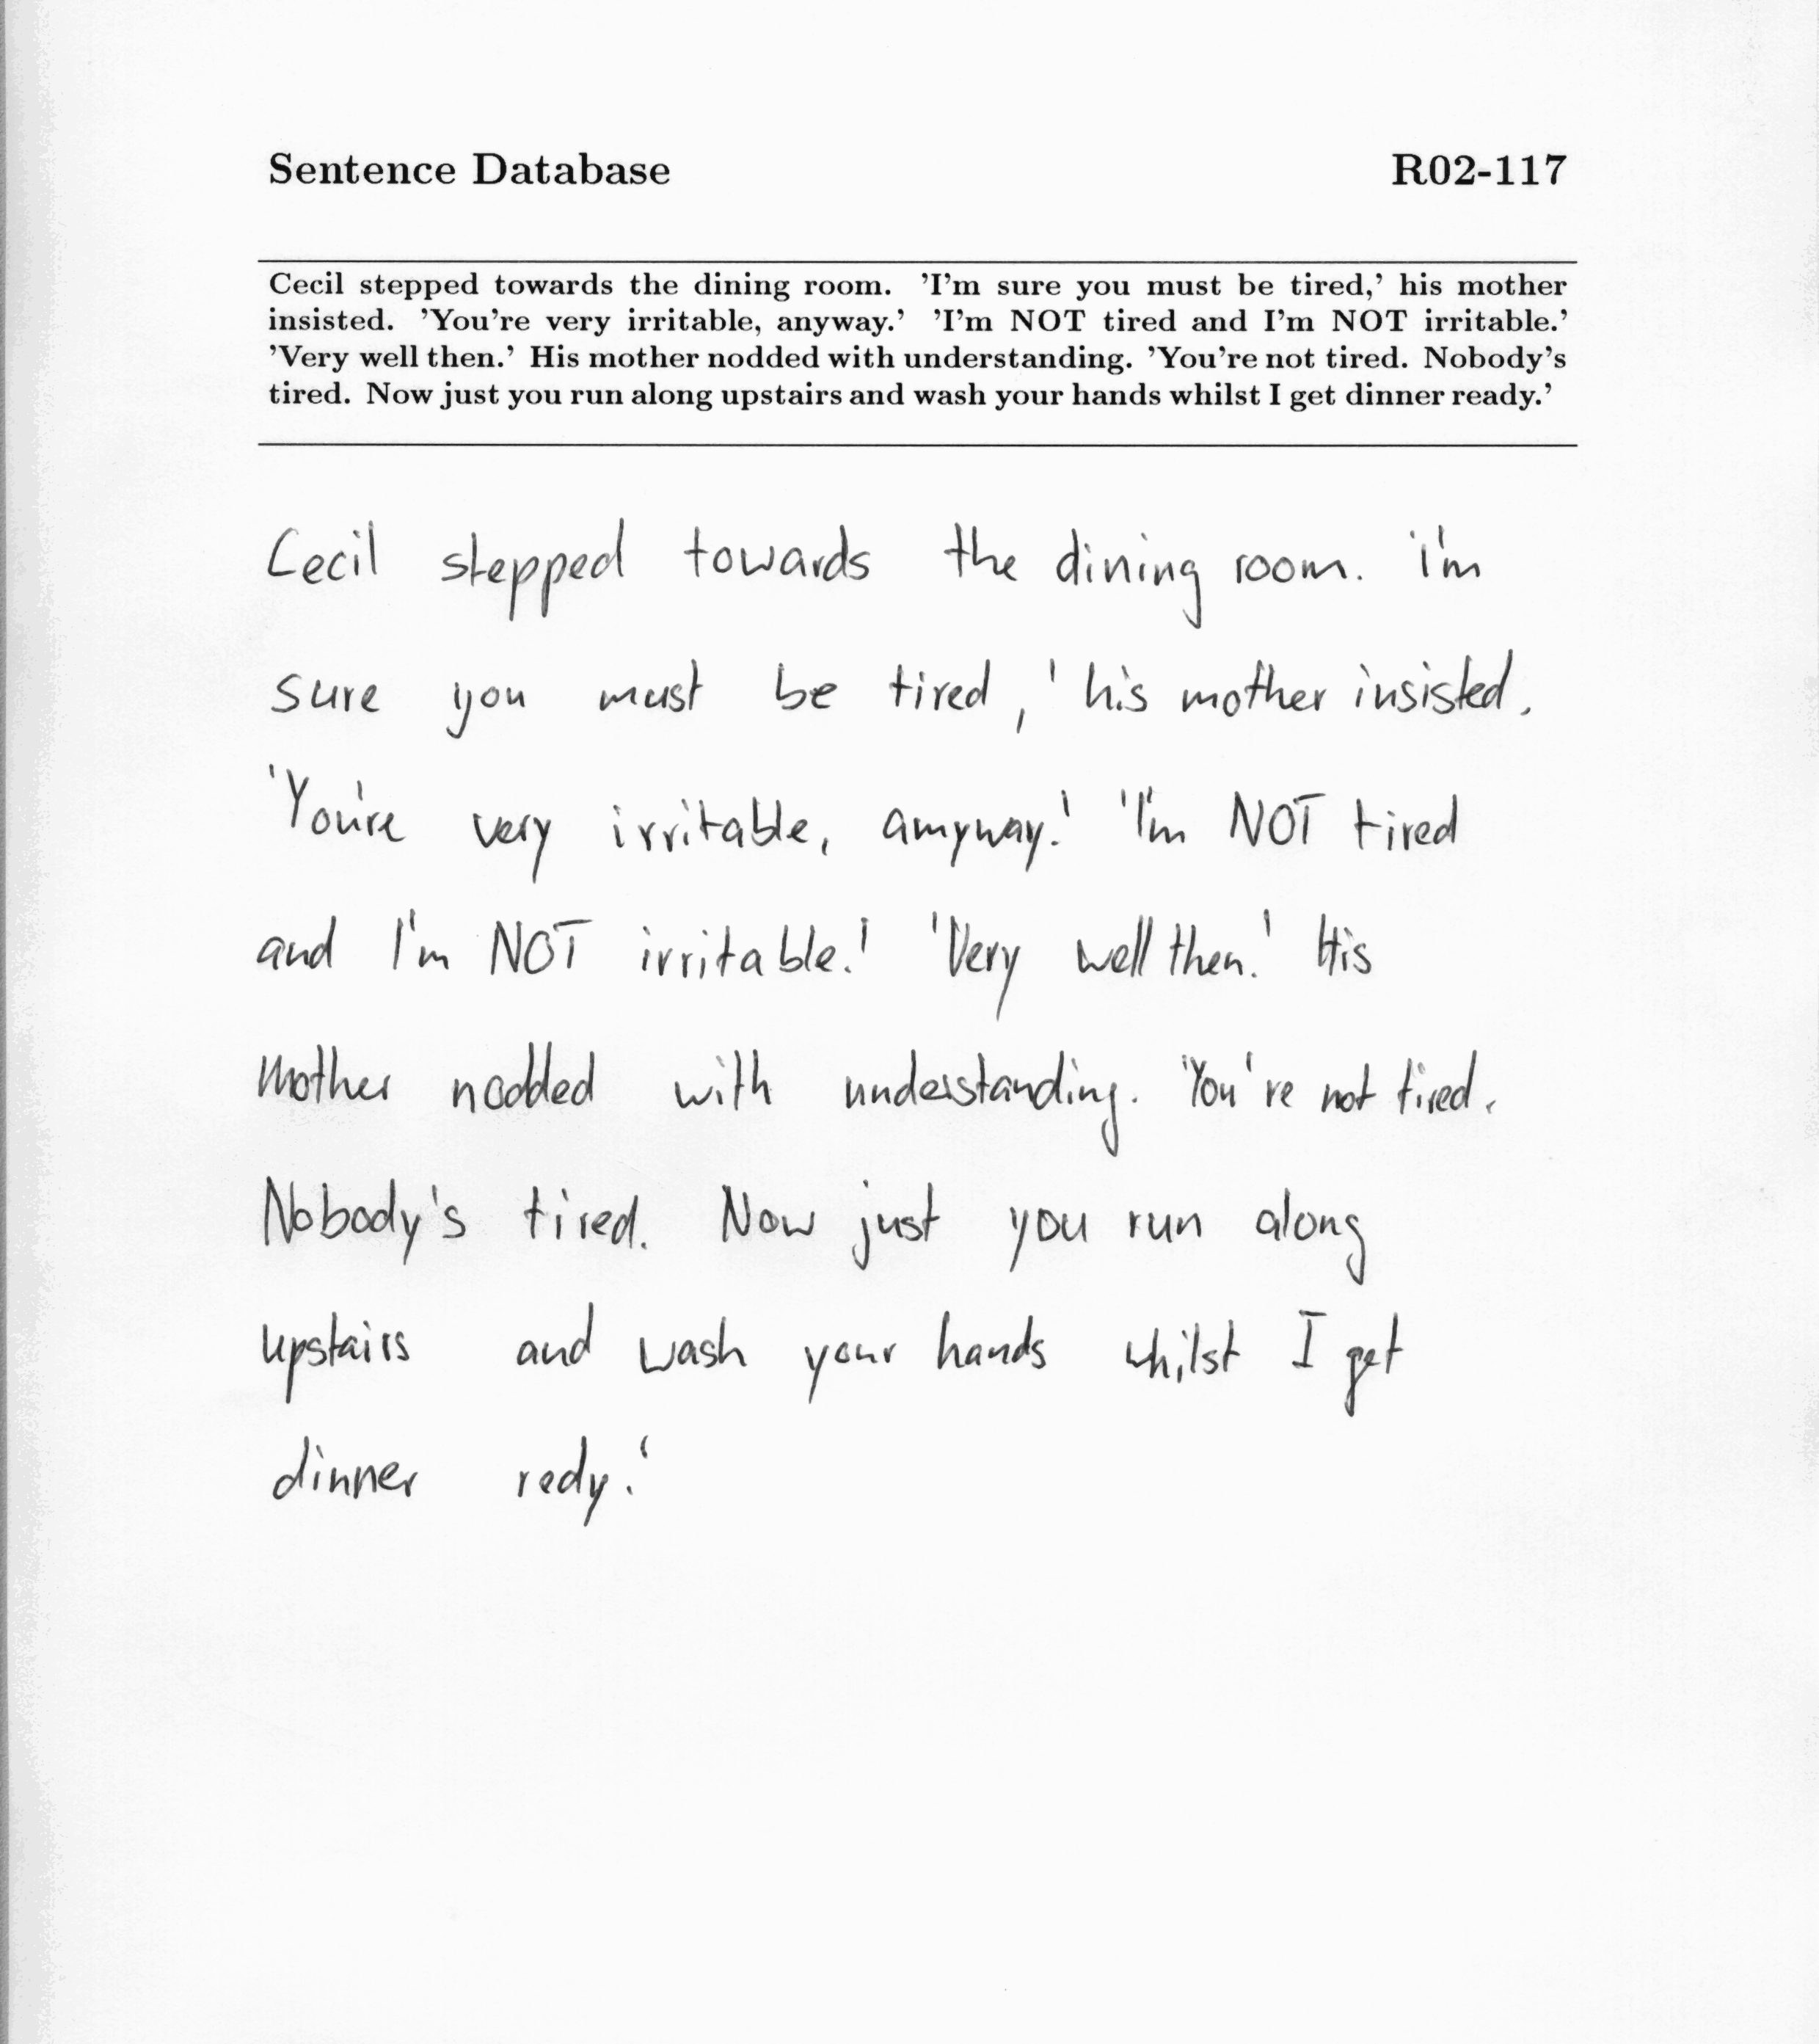 Sentence Database R02-117
Cecil stepped towards the dining room. 'I'm sure you must be tired,' his mother
insisted. 'You're very irritable, anyway.' 'I'm NOT tired and I'm NOT irritable.'
'Very well then.' His mother nodded with understanding. 'You're not tired. Nobody's
tired. Now just you run along upstairs and wash your hands whilst I get dinner ready.'
Cecil stepped towards the dining room. 'I'm
sure you must be tired,' his mother insisted.
'You're very irritable, amyway.' 'I'm NOT tired
and I'm NOT irritable.' 'Very well then.' His
mother nodded with understanding. 'You're not tired.
Nobody's tired. Now just you run along
upstairs and wash your hands whilst I get
dinner redy.'